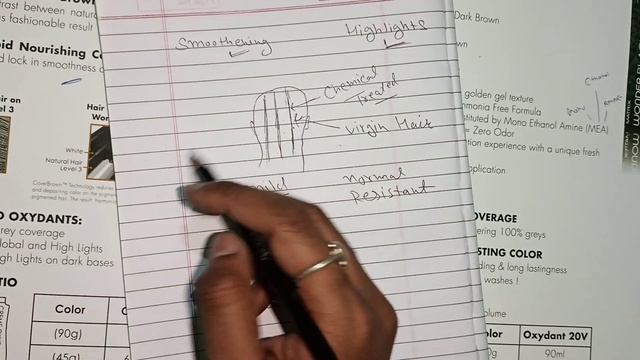 trast between natur
us fashionable result
oid Nourishing C
d lock in smoothness
air on
l 3
Hair
Wor
White
Natural Hair
Level 3
CoverBrown™ Technology
and depositing color on the
pigmented hair. The result
O OXYDANTS:
rey coverage
lobal and High Lights
gh Lights on dark bases
TIO
Color
(90g)
(45g)
Smoothening
Highlights
Chemical
Treated
Virgin Hair
normal
Resistant
Dark Brown
wn
golden gel texture
mmonia Free Formula
stituted by Mono Ethanol Amine (MEA)
= Zero Odor
tion experience with a unique fresh
pplication
OVERAGE
ering 100% greys
STING COLOR
ding & long lastingness
washes !
olume
lor
Oxydant 20V
0g
90ml